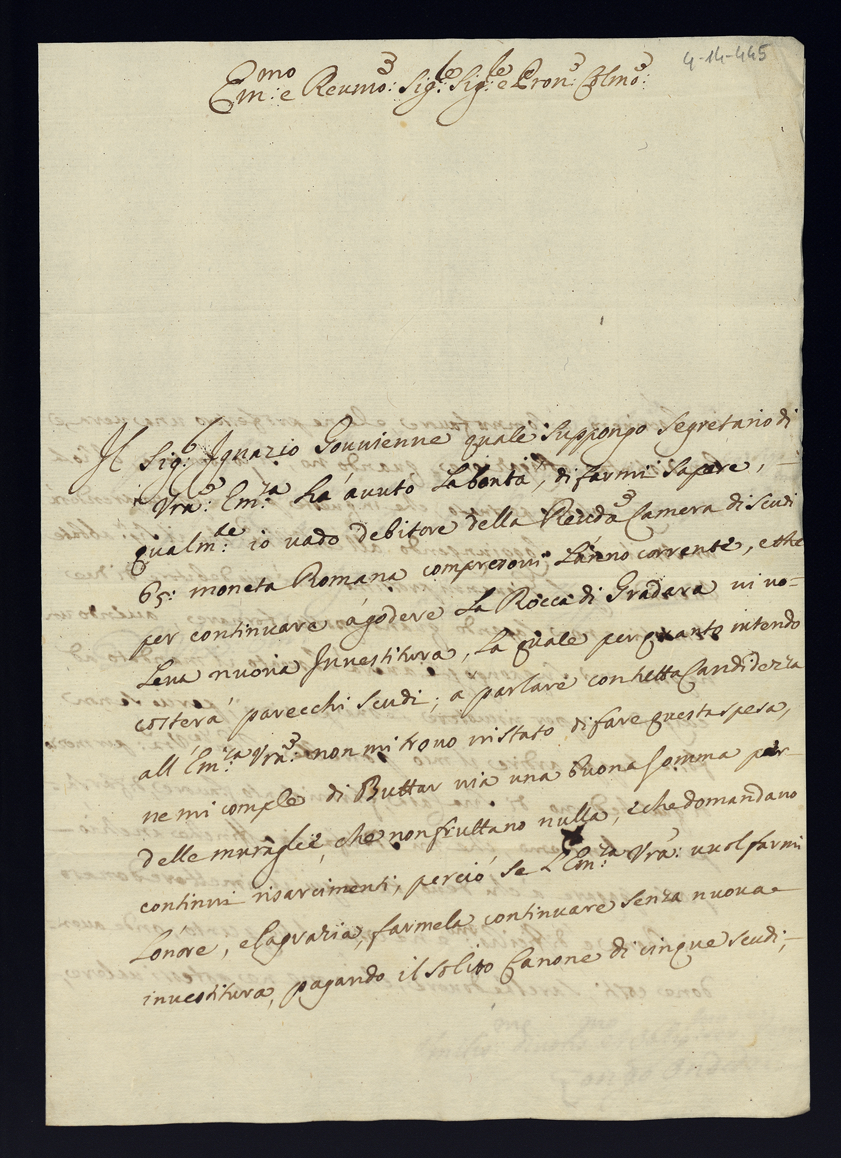 4-14-445
Em:mo e Reumo: Sig:re Sig:re e Pron: Colmo:
Il Sig:r Ignazio Gouuienne quale suppongo segretario di
Vra: Em:za hà auuto la bontà, di farmi sapere,
qualm:te io uado debitore della Reuda: Camera di scudi
65: moneta Romana compresoui l'anno corrente, e che
per continuare à godere la Rocca di Gradara ui uo-
leua nuoua Inuestitura, la quale per quanto intendo
costerà parecchi scudi; a parlare con tutta Candidezza
all'Em:za Vra: non mi trouo in stato di fare questa spesa,
ne mi comple di Buttar uia una buona somma per
delle muraglie, che non fruttano nulla, e che domandano
continui risarcimenti, perciò se l'Em:za Vra: uuol farmi
l'onore, e la grazia, farmela continuare senza nuoua
inuestitura, pagando il solito Canone di cinque scudi;